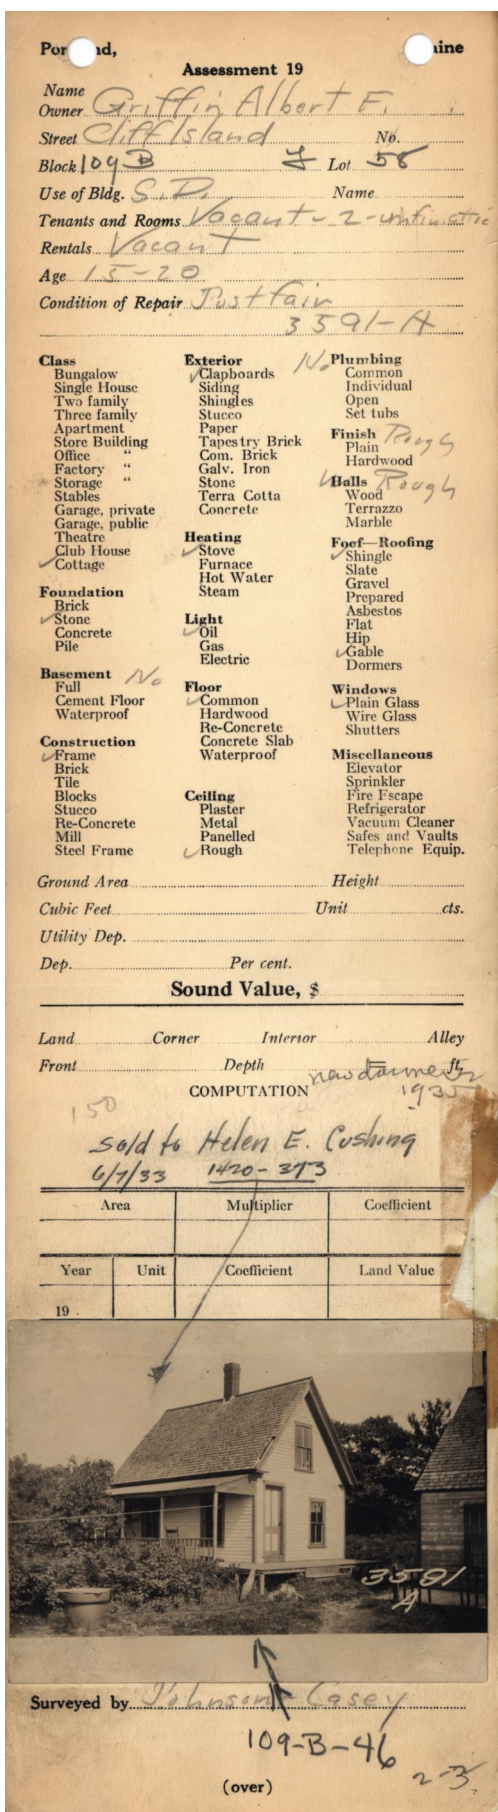 Portland, Maine
Assessment 19
Name
Owner Griffin Albert F.
Street Cliff Island No.
Block 109 B Lot 58
Use of Bldg. S.D. Name
Tenants and Rooms Vacant - 2 - unfin attic
Rentals Vacant
Age 15-20
Condition of Repair Just fair
3591-A
Class
Bungalow
Single House
Two family
Three family
Apartment
Store Building
Office "
Factory "
Storage "
Stables
Garage, private
Garage, public
Theatre
Club House
✓ Cottage
Foundation
Brick
✓ Stone
Concrete
Pile
Basement No
Full
Cement Floor
Waterproof
Construction
✓ Frame
Brick
Tile
Blocks
Stucco
Re-Concrete
Mill
Steel Frame
Exterior
✓ Clapboards
Siding
Shingles
Stucco
Paper
Tapestry Brick
Com. Brick
Galv. Iron
Stone
Terra Cotta
Concrete
Heating
✓ Stove
Furnace
Hot Water
Steam
Light
✓ Oil
Gas
Electric
Floor
✓ Common
Hardwood
Re-Concrete
Concrete Slab
Waterproof
Ceiling
Plaster
Metal
Panelled
✓ Rough
No Plumbing
Common
Individual
Open
Set tubs
Finish Rough
Plain
Hardwood
✓ Halls Rough
Wood
Terrazzo
Marble
Roof—Roofing
✓ Shingle
Slate
Gravel
Prepared
Asbestos
Flat
Hip
✓ Gable
Dormers
Windows
✓ Plain Glass
Wire Glass
Shutters
Miscellaneous
Elevator
Sprinkler
Fire Escape
Refrigerator
Vacuum Cleaner
Safes and Vaults
Telephone Equip.
Ground Area Height
Cubic Feet Unit cts.
Utility Dep.
Dep. Per cent.
Sound Value, $
Land Corner Interior Alley
Front Depth ft.
new dormers
COMPUTATION 1935
150
Sold to Helen E. Cushing
6/7/33 1420-373
Area Multiplier Coefficient
Year Unit Coefficient Land Value
19
3591
A
Surveyed by Johnson Casey
109-B-46
2-3
(over)